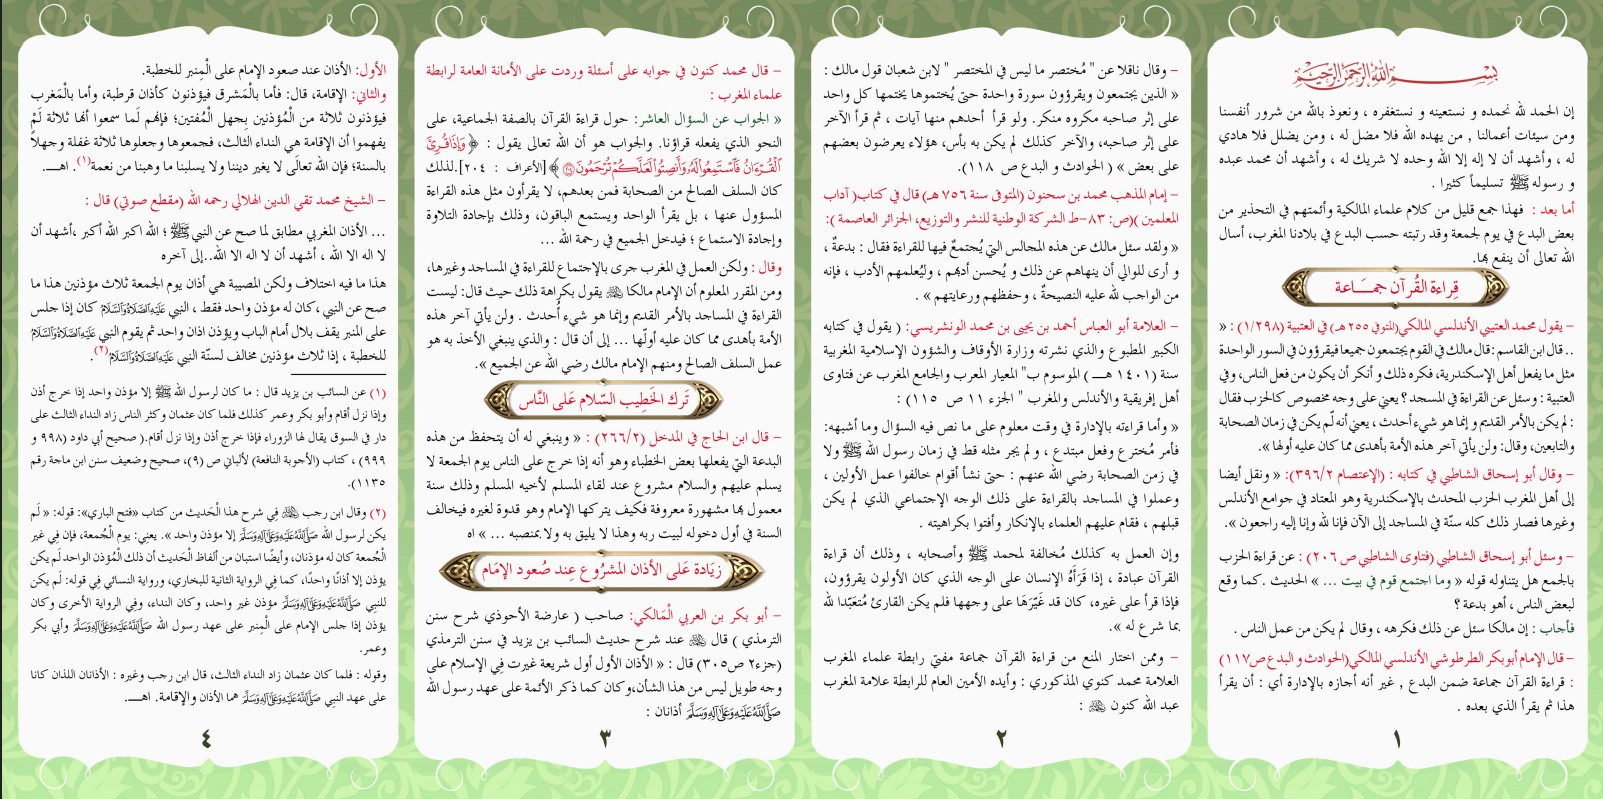 بسم الله الرحمن الرحيم
إن الحمد لله نحمده و نستعينه و نستغفره ، ونعوذ بالله من شرور أنفسنا
ومن سيئات أعمالنا , من يهده الله فلا مضل له ، ومن يضلل فلا هادي
له ، وأشهد أن لا إله إلا الله وحده لا شريك له ، وأشهد أن محمد عبده
و رسوله ﷺ تسليماً كثيرا .
أما بعد : فهذا جمع قليل من كلام علماء المالكية وأئمتهم في التحذير من
بعض البدع في يوم لجمعة وقد رتبته حسب البدع في بلادنا المغرب، أسال
الله تعالى أن ينفع بها.
قِراءة القُرآن جمـــاعة
– يقول محمد العتيبي الأندلسي المالكي(المتوفي ٢٥٥ هـ) في العتبية (١/٢٩٨) : «
.. قال ابن القاسم :قال مالك في القوم يجتمعون جميعا فيقرؤون في السور الواحدة
مثل ما يفعل أهل الإسكندرية، فكره ذلك و أنكر أن يكون من فعل الناس، وفي
العتبية : وسئل عن القراءة في المسجد ؟ يعني على وجه مخصوص كالحزب فقال
: لم يكن بالأمر القديم و إنما هو شيء أحدث ، يعني أنه لم يكن في زمان الصحابة
والتابعين، وقال: ولن يأتي آخر هذه الأمة بأهدى مما كان عليه أولها».
– وقال أبو إسحاق الشاطبي في كتابه : (الإعتصام ٣٩٦/٢): « ونقل أيضا
إلى أهل المغرب الحزب المحدث بالإسكندرية وهو المعتاد في جوامع الأندلس
وغيرها فصار ذلك كله سنّة في المساجد إلى الآن فإنا لله وإنا إليه راجعون ».
– وسئل أبو إسحاق الشاطبي (فتاوى الشاطبي ص ٢٠٦) : عن قراءة الحزب
بالجمع هل يتناوله قوله « وما اجتمع قوم في بيت ... » الحديث .كما وقع
لبعض الناس ، أهو بدعة ؟
فأجاب : إن مالكا سئل عن ذلك فكرهه ، وقال لم يكن من عمل الناس .
– قال الإمام أبوبكر الطرطوشي الأندلسي المالكي(الحوادث و البدع ص١١٧)
: قراءة القرآن جماعة ضمن البدع , غير أنه أجازه بالإدارة أي : أن يقرأ
هذا ثم يقرأ الذي بعده .
١
– وقال ناقلا عن " مُختصر ما ليس في المختصر " لابن شعبان قول مالك :
« الذين يجتمعون ويقرؤون سورة واحدة حتىّ يُختموها يختمها كل واحد
على إثر صاحبه مكروه منكر. ولو قرأ أحدهم منها آيات ، ثم قرأ الآخر
على إثر صاحبه، والآخر كذلك لم يكن به بأس، هؤلاء يعرضون بعضهم
على بعض » ( الحوادث و البدع ص ١١٨).
– إمام المذهب محمد بن سحنون (المتوفى سنة ٧٥٦ هـ) قال في كتاب( آداب
المعلمين )(ص: ٨٣–ط الشركة الوطنية للنشر والتوزيع، الجزائر العاصمة ):
« ولقد سئل مالك عن هذه المجالس التي يُجتمعُ فيها للقراءة فقال : بدعةٌ ،
و أرى للوالي أن ينهاهم عن ذلك و يُحسن أدبهم ، وليُعلمهم الأدب ، فإنه
من الواجب لله عليه النصيحةُ ، وحفظهم ورعايتهم » .
– العلامة أبو العباس أحمد بن يحيى بن محمد الونشريسي: ( يقول في كتابه
الكبير المطبوع والذي نشرته وزارة الأوقاف والشؤون الإسلامية المغربية
سنة (١٤٠١ هـــ) الموسوم ب" المعيار المعرب والجامع المغرب عن فتاوى
أهل إفريقية والأندلس والمغرب " الجزء ١١ ص ١١٥) :
« وأما قراءته بالإدارة في وقت معلوم على ما نص فيه السؤال وما أشبهه:
فأمر مُخترع وفعل مبتدع ، ولم يجر مثله قط في زمان رسول الله ﷺ ولا
في زمن الصحابة رضي الله عنهم : حتى نشأ أقوام خالفوا عمل الأولين ،
وعملوا في المساجد بالقراءة على ذلك الوجه الإجتماعي الذي لم يكن
قبلهم ، فقام عليهم العلماء بالإنكار وأفتوا بكراهيته .
وإن العمل به كذلك مُخالفة لمحمد ﷺ وأصحابه ، وذلك أن قراءة
القرآن عبادة ، إذا قَرَأَهُ الإنسان على الوجه الذي كان الأولون يقرؤون،
فإذا قرأ على غيره، كان قد غَيّرَهَا على وجهها فلم يكن القارئ مُتعبّدا لله
بما شرع له ».
– وممن اختار المنع من قراءة القرآن جماعة مفتيّ رابطة علماء المغرب
العلامة محمد كنوي المذكوري : وأيده الأمين العام للرابطة علامة المغرب
عبد الله كنون رحمه الله :
٢
– قال محمد كنون في جوابه على أسئلة وردت على الأمانة العامة لرابطة
علماء المغرب :
« الجواب عن السؤال العاشر: حول قراءة القرآن بالصفة الجماعية، على
النحو الذي يفعله قراؤنا. والجواب هو أن الله تعالى يقول : ﴿ وَإِذَا قُرِئَ
ٱلْقُرْءَانُ فَٱسْتَمِعُوا۟ لَهُۥ وَأَنصِتُوا۟ لَعَلَّكُمْ تُرْحَمُونَ ﴾[الأعراف : ٢٠٤].لذلك
كان السلف الصالح من الصحابة فمن بعدهم، لا يقرأون مثل هذه القراءة
المسؤول عنها ، بل يقرأ الواحد ويستمع الباقون، وذلك بإجادة التلاوة
وإجادة الاستماع ؛ فيدخل الجميع في رحمة الله ...
وقال : ولكن العمل في المغرب جرى بالإجتماع للقراءة في المساجد وغيرها،
ومن المقرر المعلوم أن الإمام مالكا رحمه الله يقول بكراهة ذلك حيث قال: ليست
القراءة في المساجد بالأمر القديم وإنما هو شيء أُحدث . ولن يأتي آخر هذه
الأمة بأهدى مما كان عليه أولّها ... إلى أن قال : والذي ينبغي الأخذ به هو
عمل السلف الصالح ومنهم الإمام مالك رضي الله عن الجميع ».
تَرك الخَطِيب السّلام عَلى النَّاس
– قال ابن الحاج في المدخل (٢٦٦/٢) : « وينبغي له أن يتحفظ من هذه
البدعة التيّ يفعلها بعض الخطباء وهو أنه إذا خرج على الناس يوم الجمعة لا
يسلم عليهم والسلام مشروع عند لقاء المسلم لأخيه المسلم وذلك سنة
معمول بها مشهورة معروفة فكيف يتركها الإمام وهو قدوة لغيره فيخالف
السنة في أول دخوله لبيت ربه وهذا لا يليق به ولا بمنصبه ... » اه
زيَادة عَلى الأذان المشرُوع عِند صُعود الإمَام
– أبو بكر بن العربي الْمَالكي: صاحب ( عارضة الأحوذي شرح سنن
الترمذي ) قال رحمه الله عند شرح حديث السائب بن يزيد في سنن الترمذي
(جزء٢ ص٣٠٥) قال : « الأذان الأول أول شريعة غيرت فِي الإسلام على
وجه طويل ليس من هذا الشأن،وكان كما ذكر الأئمة على عهد رسول الله
صَلَّى اللهُ عَلَيْهِ وَعَلَى آلِهِ وَسَلَّمَ أذانان :
٣
الأول: الأذان عند صعود الإمام على الْمِنبر للخطبة.
والثاني: الإقامة، قال: فأما بالْمَشرق فيؤذنون كأذان قرطبة، وأما بالْمَغرب
فيؤذنون ثلاثة من الْمُؤذنين بِجهل الْمُفتين؛ فإنهم لَما سمعوا أنها ثلاثة لَمْ
يفهموا أن الإقامة هي النداء الثالث، فجمعوها وجعلوها ثلاثة غفلة وجهلاً
بالسنة؛ فإن الله تعالَى لا يغير ديننا ولا يسلبنا ما وهبنا من نعمة(١). اهـــ.
– الشيخ محمد تقي الدين الهلالي رحمه الله (مقطع صوتي) قال :
... الأذان المغربي مطابق لما صح عن النبي ﷺ ؛ الله اكبر الله أكبر ،أشهد أن
لا اله الا الله ، أشهد أن لا اله الا الله..إلى آخره
هذا ما فيه اختلاف ولكن المصيبة هي أذان يوم الجمعة ثلاث مؤذنين هذا ما
صح عن النبي ،كان له مؤذن واحد فقط ، النبي عَلَيْهِ الصَّلَاةُ وَالسَّلَامُ كان إذا جلس
على المنبر يقف بلال أمام الباب ويؤذن اذان واحد ثم يقوم النبي عَلَيْهِ الصَّلَاةُ وَالسَّلَامُ
للخطبة ، إذا ثلاث مؤذنين مخالف لسنّة النبي عَلَيْهِ الصَّلَاةُ وَالسَّلَامُ(٢).
(١) عن السائب بن يزيد قال : ما كان لرسول الله ﷺ إلا مؤذن واحد إذا خرج أذن
وإذا نزل أقام وأبو بكر وعمر كذلك فلما كان عثمان وكثر الناس زاد النداء الثالث على
دار في السوق يقال لها الزوراء فإذا خرج أذن وإذا نزل أقام.( صحيح أبي داود (٩٩٨ و
٩٩٩) ، كتاب (الأجوبة النافعة) لألباني ص (٩)، صحيح وضعيف سنن ابن ماجة رقم
١١٣٥).
(٢) وقال ابن رجب رحمه الله فِي شرح هذا الْحَديث من كتاب «فتح الباري»: قوله: « لَم
يكن لرسول الله صَلَّى اللهُ عَلَيْهِ وَعَلَى آلِهِ وَسَلَّمَ إلا مؤذن واحد ». يعنِي: يوم الْجُمعة، فإن فِي غير
الْجُمعة كان له مؤذنان، وأيضًا استبان من ألفاظ الْحَديث أن ذلك الْمُؤذن الواحد لَم يكن
يؤذن إلا أذانًا واحدًا، كما فِي الرواية الثانية للبخاري، ورواية النسائي فِي قوله: لَم يكن
للنبِي صَلَّى اللهُ عَلَيْهِ وَعَلَى آلِهِ وَسَلَّمَ مؤذن غير واحد، وكان النداء، وفِي الرواية الأخرى وكان
يؤذن إذا جلس الإمام على الْمِنبر على عهد رسول الله صَلَّى اللهُ عَلَيْهِ وَعَلَى آلِهِ وَسَلَّمَ وأبي بكر
وعمر.
وقوله : فلما كان عثمان زاد النداء الثالث، قال ابن رجب وغيره : الأذانان اللذان كانا
على عهد النبي صَلَّى اللهُ عَلَيْهِ وَعَلَى آلِهِ وَسَلَّمَ هما الأذان والإقامة. اهـــ.
٤